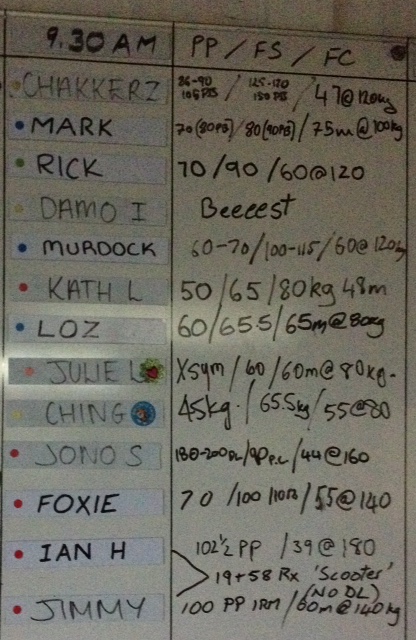 9.30AM PP / FS / FC
CHAKKERZ 86-90 105 PB / 125-130 150 PB / 47@120kg
MARK 70(80PB)/80(90PB)/75m@100kg
RICK 70/90/60@120
DAMO I Beeeest
MURDOCK 60-70/100-115/60@120kg
KATH L 50/65/80kg 48m
LOZ 60/65.5/65m@80kg
JULIE L Xsym/60/60m@80kg.
CHING 45kg./65.5kg/55@80
JONO S 180-200DL/90P.C/44@160
FOXIE 70/100 /55@140
IAN H 102½ PP /39@180
19+58 Rx 'Scooter'
(NO DL)
JIMMY 100 PP 1RM/60m@140kg